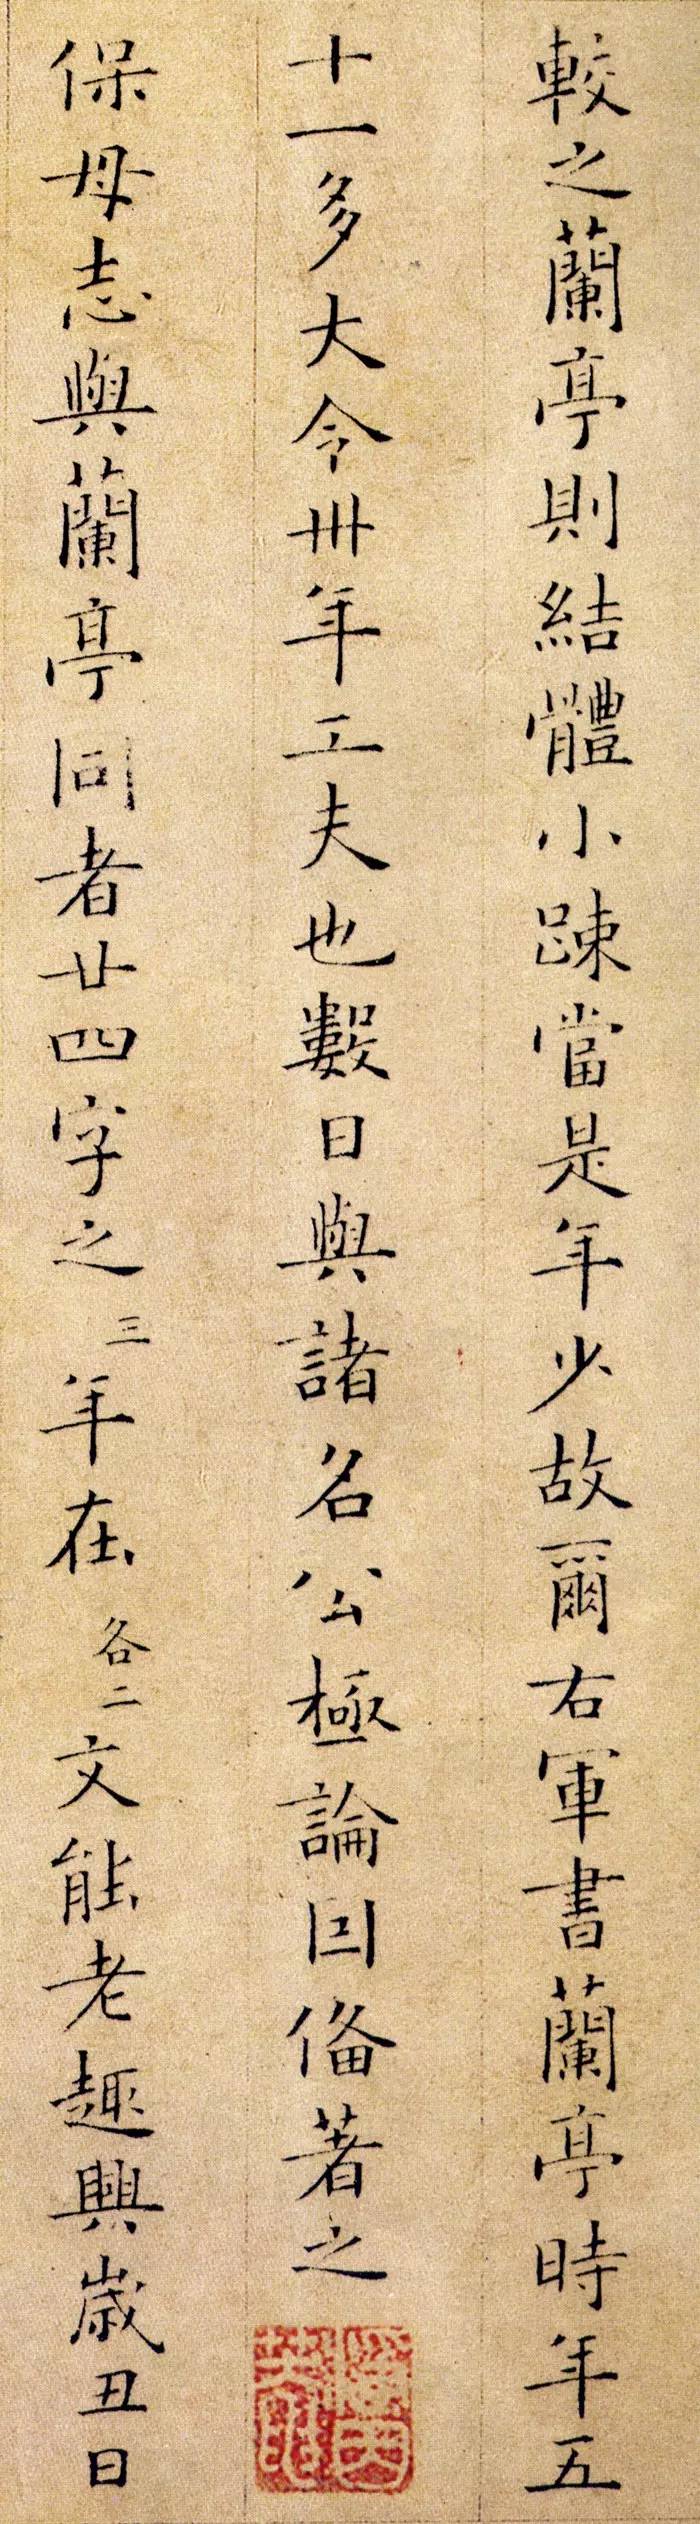 較之蘭亭則結體小踈當是年少故爾右軍書蘭亭時年五
十一多大令卅年工夫也數日與諸名公極論因俻著之
保母志與蘭亭同者廿四字之三年在各二文能老趣興歲丑日